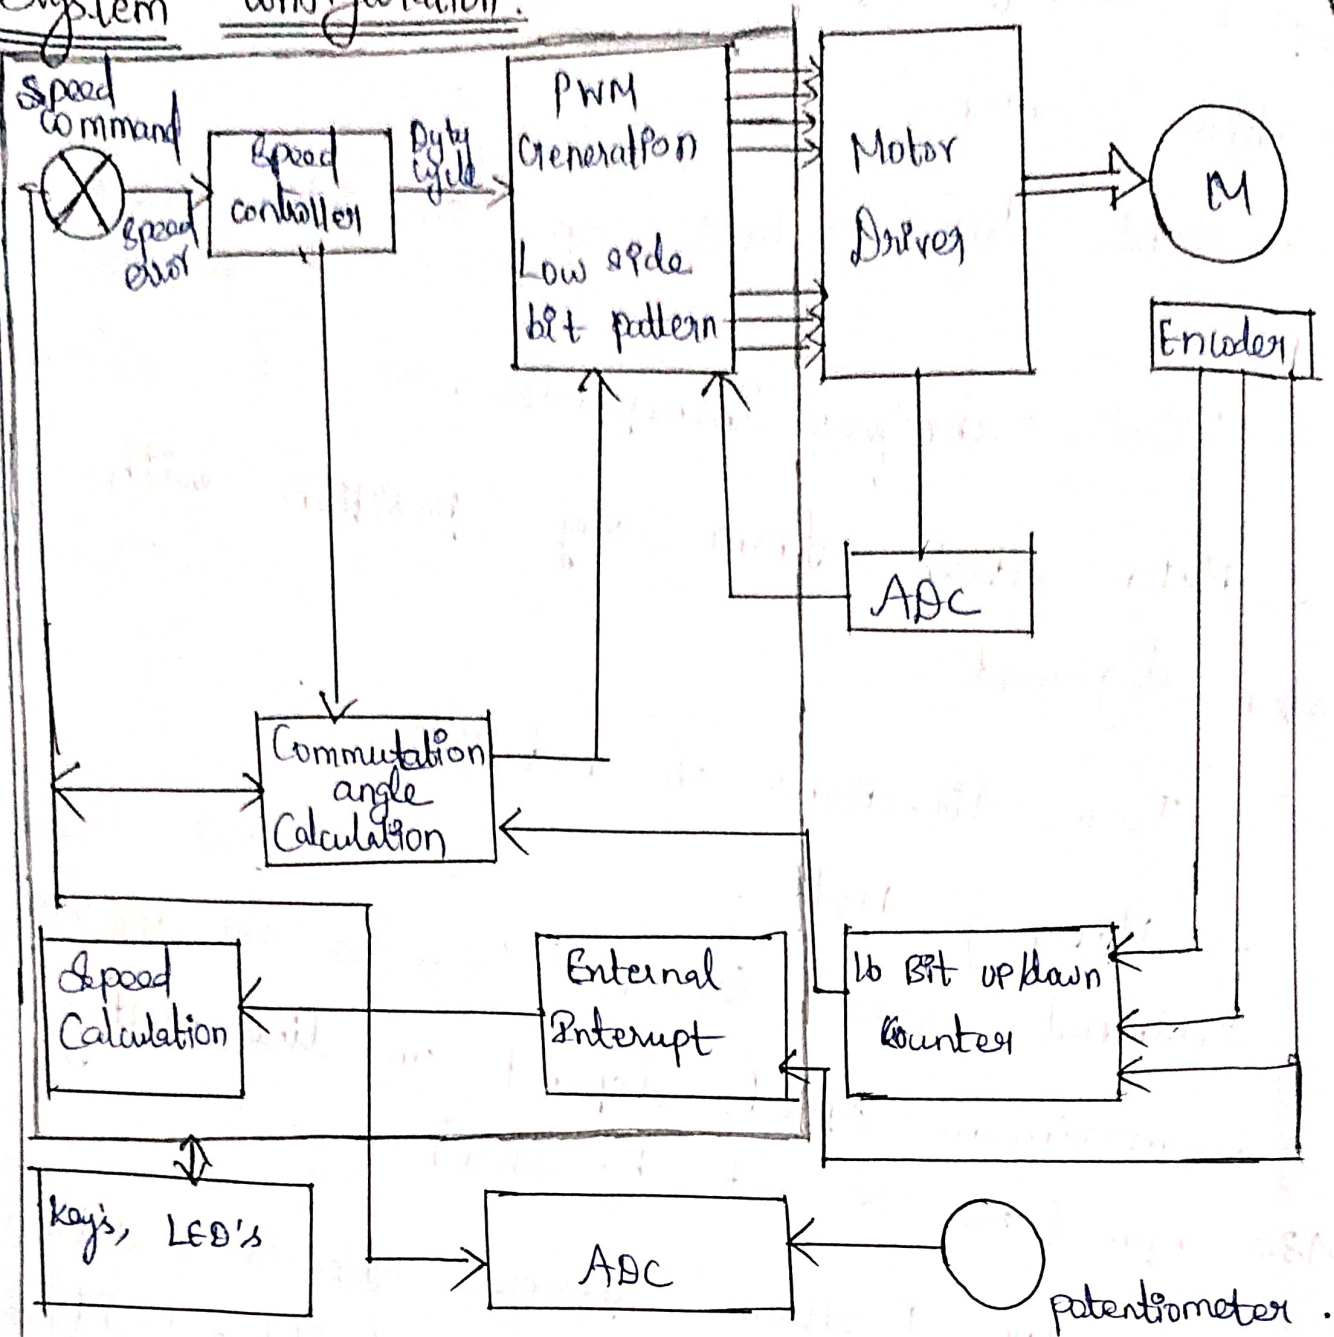 System configuration.
Speed
command
Speed
controller
Duty
Cycle
speed
error
PWM
Generation
Low side
bit pattern
Motor
Driver
M
Encoder
ADC
Commutation
angle
Calculation
Speed
Calculation
External
Interupt
16 Bit up/down
Counter
Key's, LED's
ADC
patentiometer.